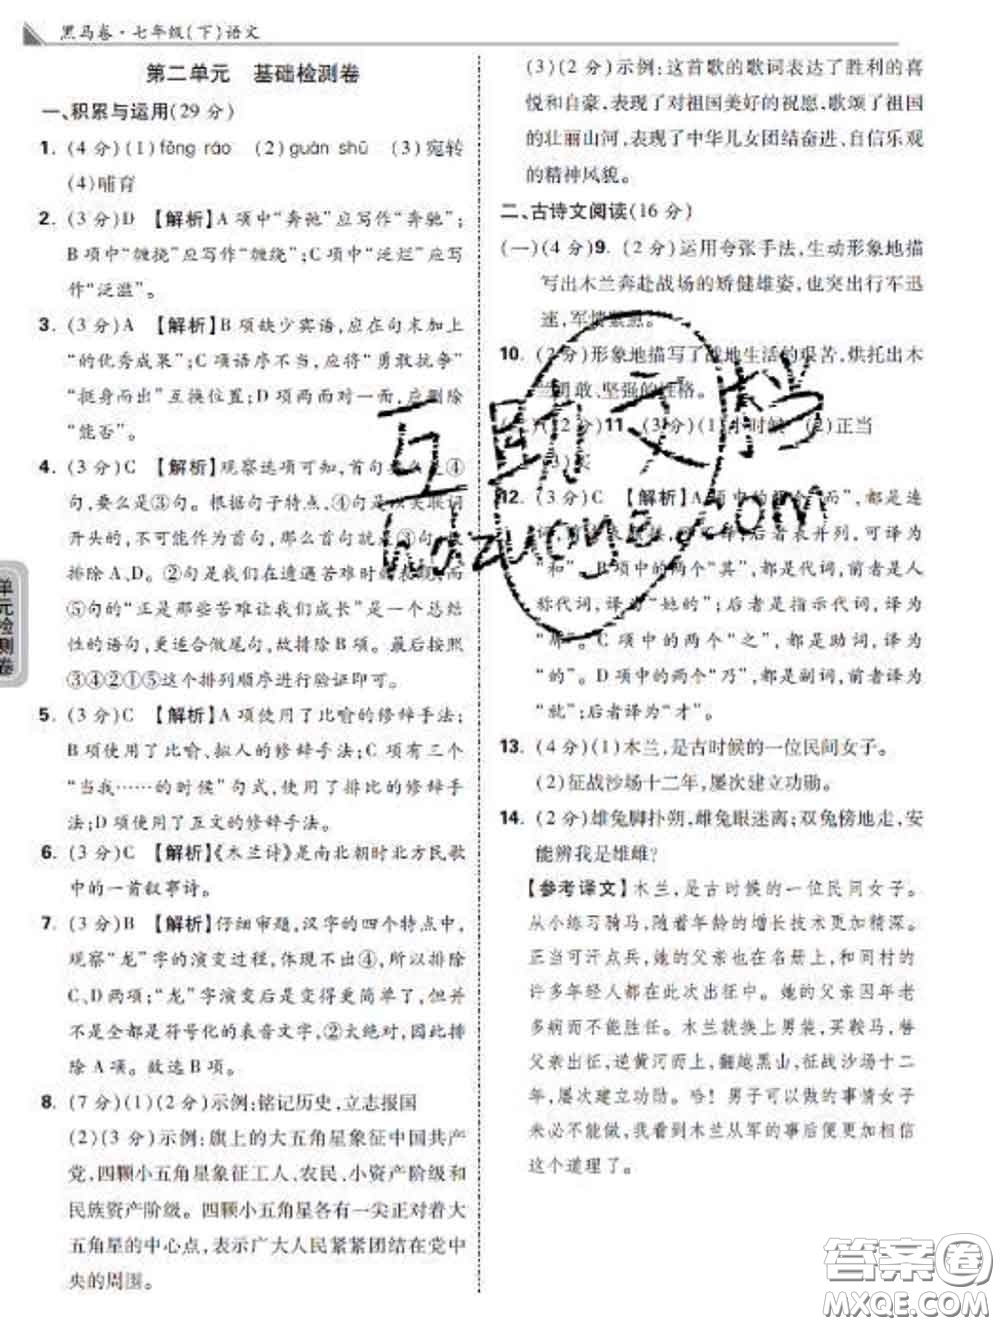 黑马卷·七年级(下)语文
第二单元 基础检测卷
一、积累与运用(29 分)
1. (4 分)(1)fěng ráo (2)guàn shū (3)宛转
(4)哺育
2. (3 分)D 【解析】A 项中“奔弛”应写作“奔驰”;
B 项中“缠挠”应写作“缠绕”;C 项中“泛烂”应写
作“泛滥”。
3. (3 分)A 【解析】B 项缺少宾语,应在句末加上
“的优秀成果”;C 项语序不当,应将“勇敢抗争”
“挺身而出”互换位置;D 项两面对一面,应删除
“能否”。
4. (3 分)C 【解析】观察选项可知,首句要么是④
句,要么是③句。根据句子特点,④句是以关联词
开头的,不可能作为首句,那么首句就是③句,
排除A、D。②句是我们在遭遇苦难时的表现,而
⑤句的“正是那些苦难让我们成长”是一个总结
性的语句,更适合做尾句,故排除 B 项。最后按照
③④②①⑤这个排列顺序进行验证即可。
5. (3 分)C 【解析】A 项使用了比喻的修辞手法;
B 项使用了比喻、拟人的修辞手法;C 项有三个
“当我……的时候”句式,使用了排比的修辞手
法;D 项使用了互文的修辞手法。
6. (3 分)C 【解析】《木兰诗》是南北朝时北方民歌
中的一首叙事诗。
7. (3 分)B 【解析】仔细审题,汉字的四个特点中,
观察“龙”字的演变过程,体现不出④,所以排除
C、D 两项;“龙”字演变后是变得更简单了,但并
不是全部是符号化的表音文字,②太绝对,因此排
除 A 项。故选 B 项。
8. (7 分)(1)(2 分)示例:铭记历史,立志报国
(2)(3 分)示例:旗上的大五角星象征中国共产
党,四颗小五角星象征工人、农民、小资产阶级和
民族资产阶级。四颗小五角星各有一尖正对着大
五角星的中心点,表示广大人民紧紧团结在党中
央的周围。
单元检测卷
(3)(2 分)示例:这首歌的歌词表达了胜利的喜
悦和自豪,表现了对祖国美好的祝愿,歌颂了祖国
的壮丽山河,表现了中华儿女团结奋进、自信乐观
的精神风貌。
二、古诗文阅读(16 分)
(一)(4 分)9. (2 分)运用夸张手法,生动形象地描
写出木兰奔赴战场的矫健雄姿,也突出行军迅
速,军情紧急。
10. (2 分)形象地描写了战地生活的艰苦,烘托出木
兰勇敢、坚强的性格。
(12 分)11. (3 分)(1)小时候 (2)正当
12. (3 分)C 【解析】A 项中的两个“而”,都是连
词,前者表
“和”。B 项中的两个“其”,都是代词,前者是人
称代词,译为“她的”;后者是指示代词,译为
“那”。C 项中的两个“之”,都是助词,译为
“的”。D 项中的两个“乃”,都是副词,前者译为
“就”;后者译为“才”。
13. (4 分)(1)木兰,是古时候的一位民间女子。
(2)征战沙场十二年,屡次建立功勋。
14. (2 分)雄兔脚扑朔,雌兔眼迷离;双兔傍地走,安
能辨我是雄雌?
【参考译文】木兰,是古时候的一位民间女子。
从小练习骑马,随着年龄的增长技术更精深。
正当可汗点兵,她的父亲也在名册上,和同村的
许多年轻人都在此次出征中。她的父亲因年老
多病而不能胜任。木兰就换上男装,买鞍马,替
父亲出征,逆黄河而上,翻越黑山,征战沙场十二
年,屡次建立功勋。哈!男子可以做的事情女子
未必不能做,我看到木兰从军的事后便更加相信
这个道理了。
互助文档
hdzuoye.com
答案圈
MXQE.COM